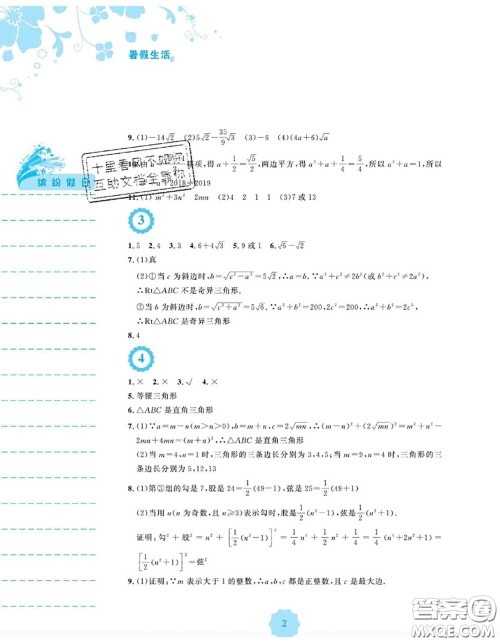 暑假生活
缤纷假日
9.(1)-14√2 (2)5√2-35/9√3 (3)-5 (4)(4a+6)√a
得a+1/2=√5/2,两边平方,得a²+a+1/4=5/4,所以a²+a=1,所以
+2018=2019
11.(1)m²+3n² 2mn (2)4 2 1 1 (3)7或13
3
1.5 2.4 3.3 4.6+4√3 5.9或1 6.√6-√2
7.(1)真
(2)①当c为斜边时,b=√(c²-a²)=5√2,∴a=b.∵a²+c²≠2b²(或b²+c²≠2a²),
∴Rt△ABC不是奇异三角形
②当b为斜边时,b=√(c²+a²)=5√6.∵a²+b²=200,2c²=200,∴a²+b²=2c²,
∴Rt△ABC是奇异三角形
8.4
4
1.× 2.× 3.√ 4.×
5.等腰三角形
6.△ABC是直角三角形
7.(1)∵a=m-n(m>n>0),b=m+n,c=2√mn,∴(m-n)²+(2√mn)²=m²+n²-
2mn+4mn=(m+n)²,∴该三角形是直角三角形
(2)当m=4,n=1时,三角形的三条边长分别为3,4,5;当m=9,n=4时,三角形的三
条边长分别为5,12,13
8.(1)第③组的勾是7,股是24=1/2(49-1),弦是25=1/2(49+1)
(2)当用n(n为奇数,且n≥3)表示勾时,股是1/2(n²-1),弦是1/2(n²+1)
证明:勾²+股²=n²+[1/2(n²-1)]²=1/4n⁴+1/2n²+1/4=1/4(n⁴+2n²+1)=
[1/2(n²+1)]²=弦²
9.(1)证明:∵m表示大于1的整数,∴a,b,c都是正整数,且c是最大边.
2
答案圈
MXQE.COM